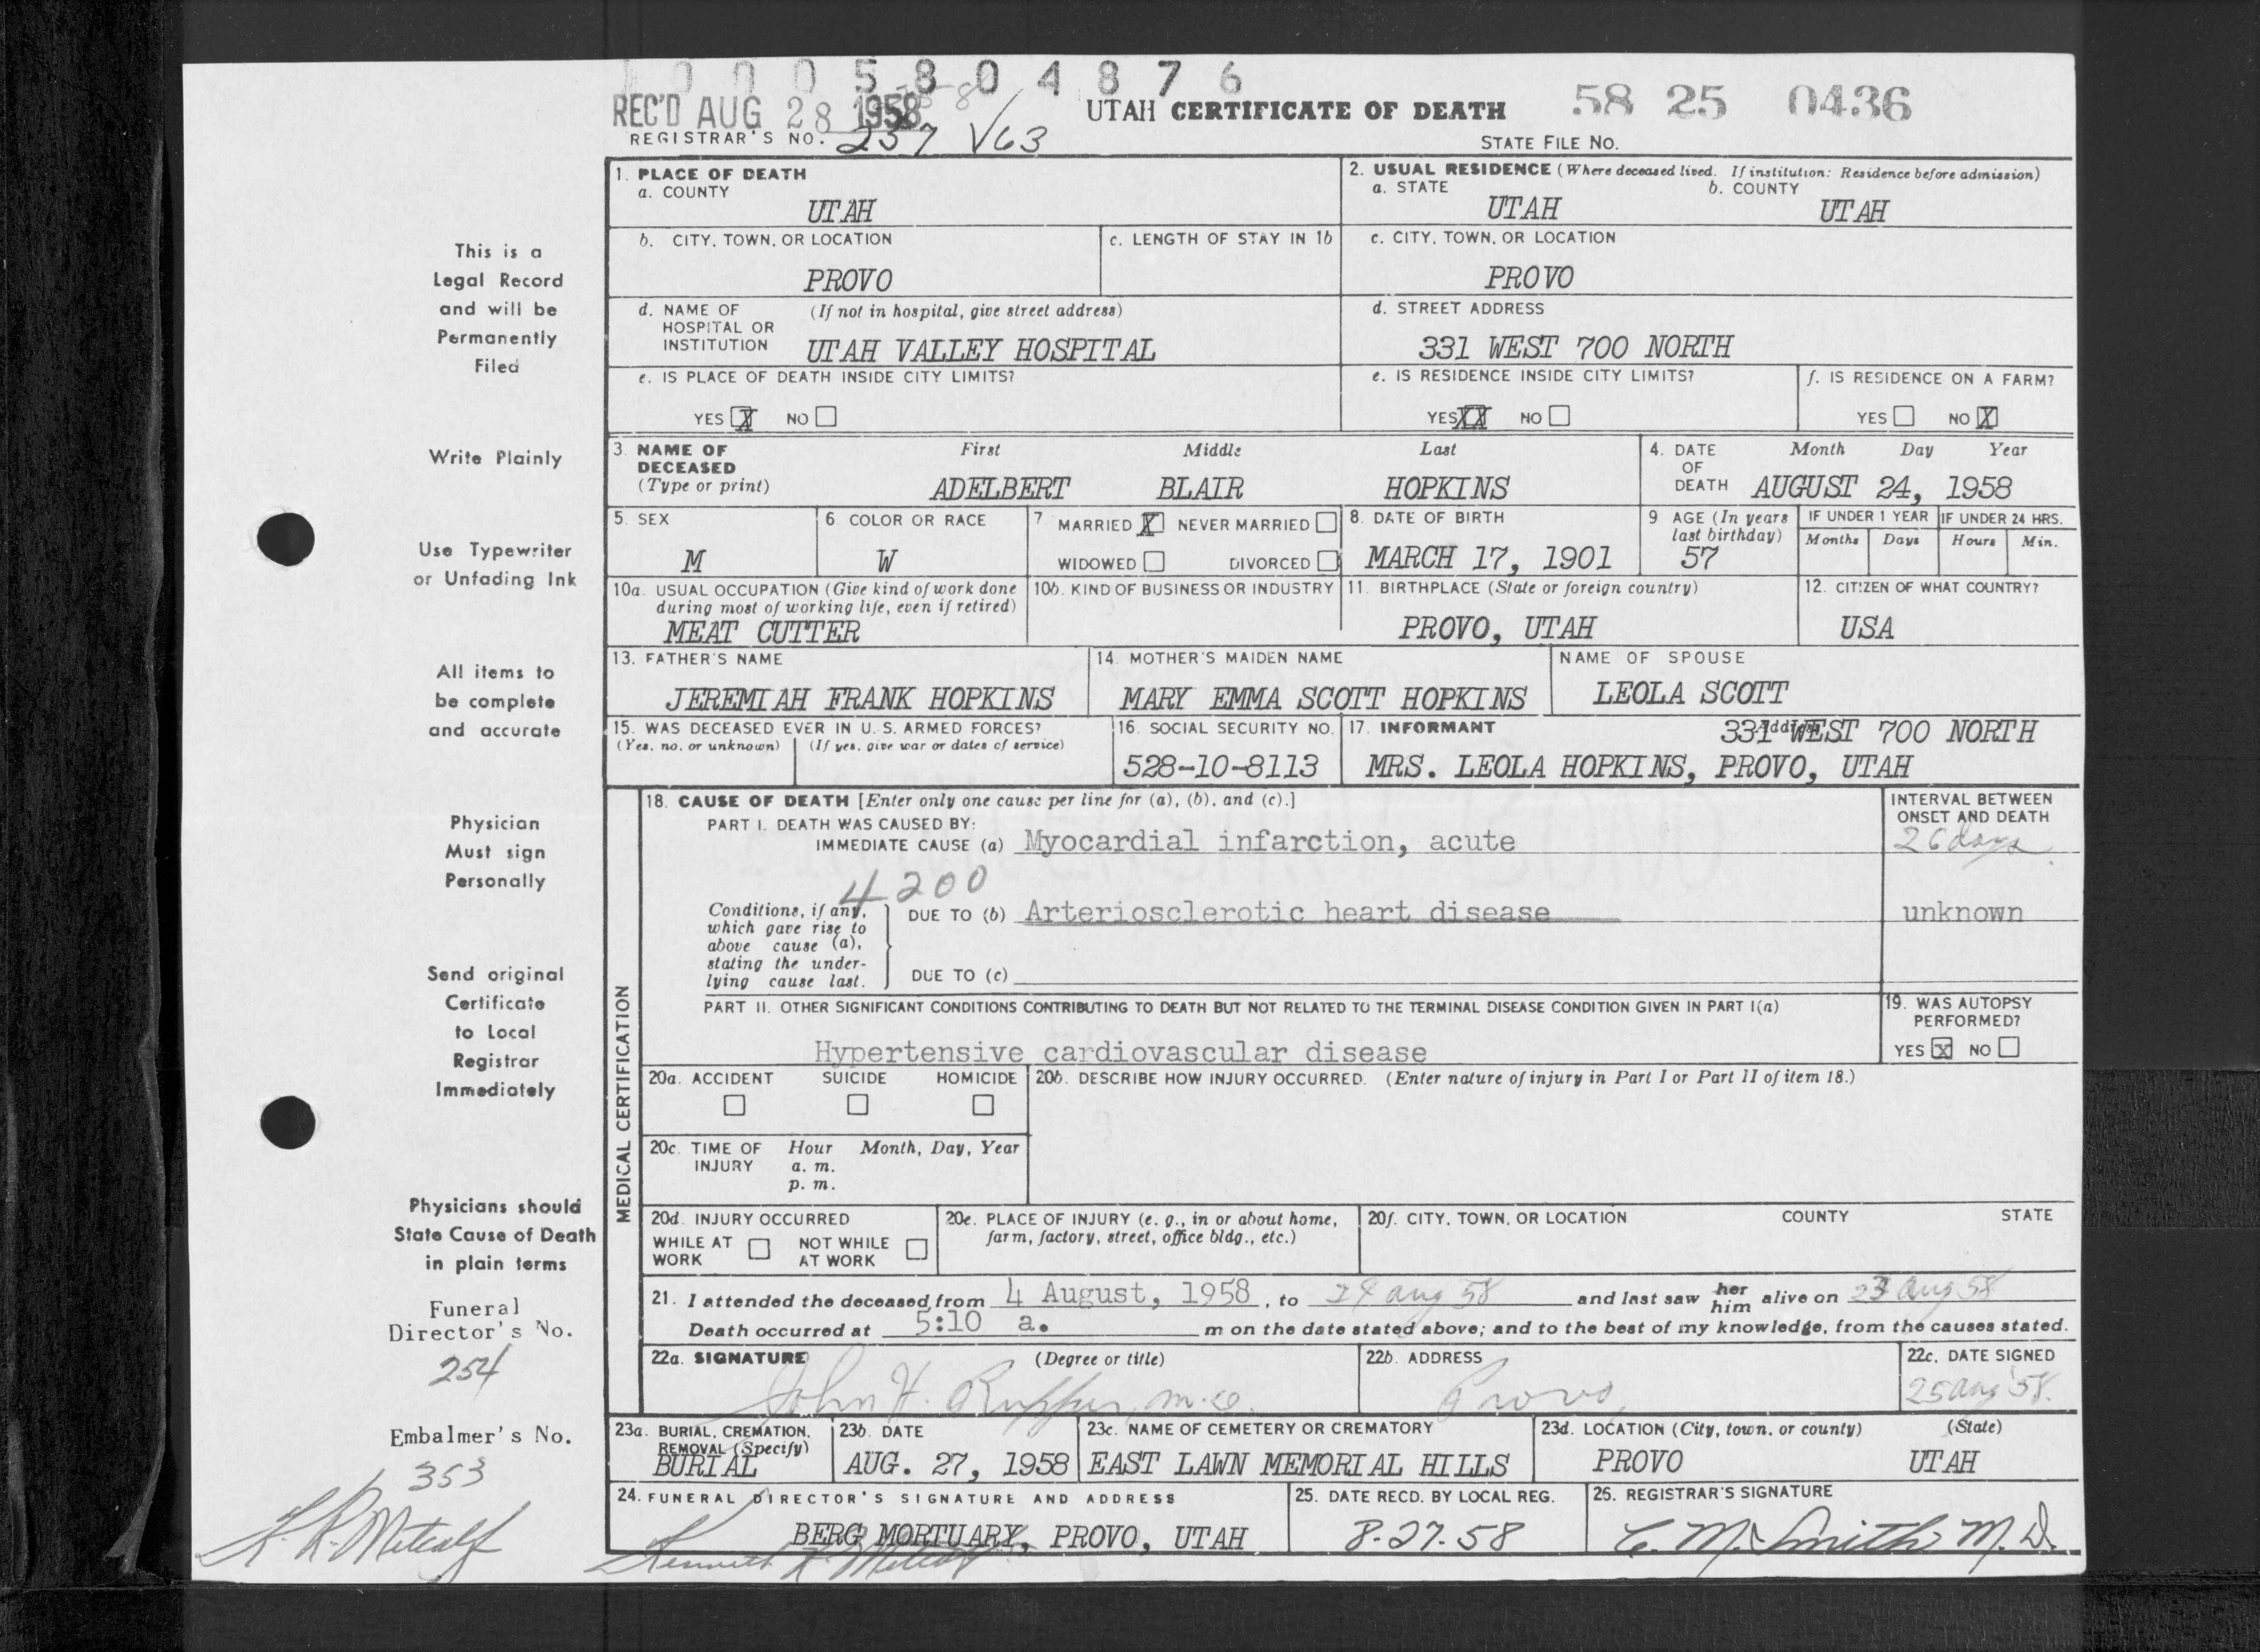 0 0 0 5 8 0 4 8 7 6
REC'D AUG 28 1958
UTAH CERTIFICATE OF DEATH
58 25 0436
REGISTRAR'S NO. 237 √63
STATE FILE NO.
1. PLACE OF DEATH
a. COUNTY
UTAH
2. USUAL RESIDENCE (Where deceased lived. If institution: Residence before admission)
a. STATE b. COUNTY
UTAH UTAH
b. CITY, TOWN, OR LOCATION
PROVO
c. LENGTH OF STAY IN 1b
c. CITY, TOWN, OR LOCATION
PROVO
d. NAME OF HOSPITAL OR INSTITUTION (If not in hospital, give street address)
UTAH VALLEY HOSPITAL
d. STREET ADDRESS
331 WEST 700 NORTH
e. IS PLACE OF DEATH INSIDE CITY LIMITS?
YES X NO
e. IS RESIDENCE INSIDE CITY LIMITS?
YES XX NO
f. IS RESIDENCE ON A FARM?
YES NO X
3. NAME OF DECEASED (Type or print)
First Middle Last
ADELBERT BLAIR HOPKINS
4. DATE OF DEATH Month Day Year
AUGUST 24, 1958
5. SEX
M
6. COLOR OR RACE
W
7. MARRIED X NEVER MARRIED
WIDOWED DIVORCED
8. DATE OF BIRTH
MARCH 17, 1901
9 AGE (In years last birthday)
57
IF UNDER 1 YEAR
Months Days
IF UNDER 24 HRS.
Hours Min.
10a. USUAL OCCUPATION (Give kind of work done during most of working life, even if retired)
MEAT CUTTER
10b. KIND OF BUSINESS OR INDUSTRY
11. BIRTHPLACE (State or foreign country)
PROVO, UTAH
12. CITIZEN OF WHAT COUNTRY?
USA
13. FATHER'S NAME
JEREMIAH FRANK HOPKINS
14. MOTHER'S MAIDEN NAME
MARY EMMA SCOTT HOPKINS
NAME OF SPOUSE
LEOLA SCOTT
15. WAS DECEASED EVER IN U. S. ARMED FORCES?
(Yes, no, or unknown) (If yes, give war or dates of service)
16. SOCIAL SECURITY NO.
528-10-8113
17. INFORMANT Address
331 WEST 700 NORTH
MRS. LEOLA HOPKINS, PROVO, UTAH
MEDICAL CERTIFICATION
18. CAUSE OF DEATH [Enter only one cause per line for (a), (b), and (c).]
PART I. DEATH WAS CAUSED BY:
IMMEDIATE CAUSE (a) Myocardial infarction, acute
INTERVAL BETWEEN ONSET AND DEATH
26 days
4200
Conditions, if any, which gave rise to above cause (a), stating the underlying cause last.
DUE TO (b) Arteriosclerotic heart disease
unknown
DUE TO (c)
PART II. OTHER SIGNIFICANT CONDITIONS CONTRIBUTING TO DEATH BUT NOT RELATED TO THE TERMINAL DISEASE CONDITION GIVEN IN PART I(a)
Hypertensive cardiovascular disease
19. WAS AUTOPSY PERFORMED?
YES X NO
20a. ACCIDENT SUICIDE HOMICIDE
20b. DESCRIBE HOW INJURY OCCURRED. (Enter nature of injury in Part I or Part II of item 18.)
20c. TIME OF INJURY Hour Month, Day, Year
a. m.
p. m.
20d. INJURY OCCURRED
WHILE AT WORK NOT WHILE AT WORK
20e. PLACE OF INJURY (e. g., in or about home, farm, factory, street, office bldg., etc.)
20f. CITY, TOWN, OR LOCATION COUNTY STATE
21. I attended the deceased from 4 August, 1958, to 24 Aug 58 and last saw her him alive on 23 Aug 58
Death occurred at 5:10 a. m on the date stated above; and to the best of my knowledge, from the causes stated.
22a. SIGNATURE (Degree or title)
John H. Rupper, M.D.
22b. ADDRESS
Provo
22c. DATE SIGNED
25 Aug 58.
23a. BURIAL, CREMATION, REMOVAL (Specify)
BURIAL
23b. DATE
AUG. 27, 1958
23c. NAME OF CEMETERY OR CREMATORY
EAST LAWN MEMORIAL HILLS
23d. LOCATION (City, town, or county) (State)
PROVO UTAH
24. FUNERAL DIRECTOR'S SIGNATURE AND ADDRESS
BERG MORTUARY, PROVO, UTAH
Kenneth R Metcalf
25. DATE RECD. BY LOCAL REG.
8-27-58
26. REGISTRAR'S SIGNATURE
C. M. Smith M. D.
This is a
Legal Record
and will be
Permanently
Filed
Write Plainly
Use Typewriter
or Unfading Ink
All items to
be complete
and accurate
Physician
Must sign
Personally
Send original
Certificate
to Local
Registrar
Immediately
Physicians should
State Cause of Death
in plain terms
Funeral
Director's No.
254
Embalmer's No.
353
K. R. Metcalf